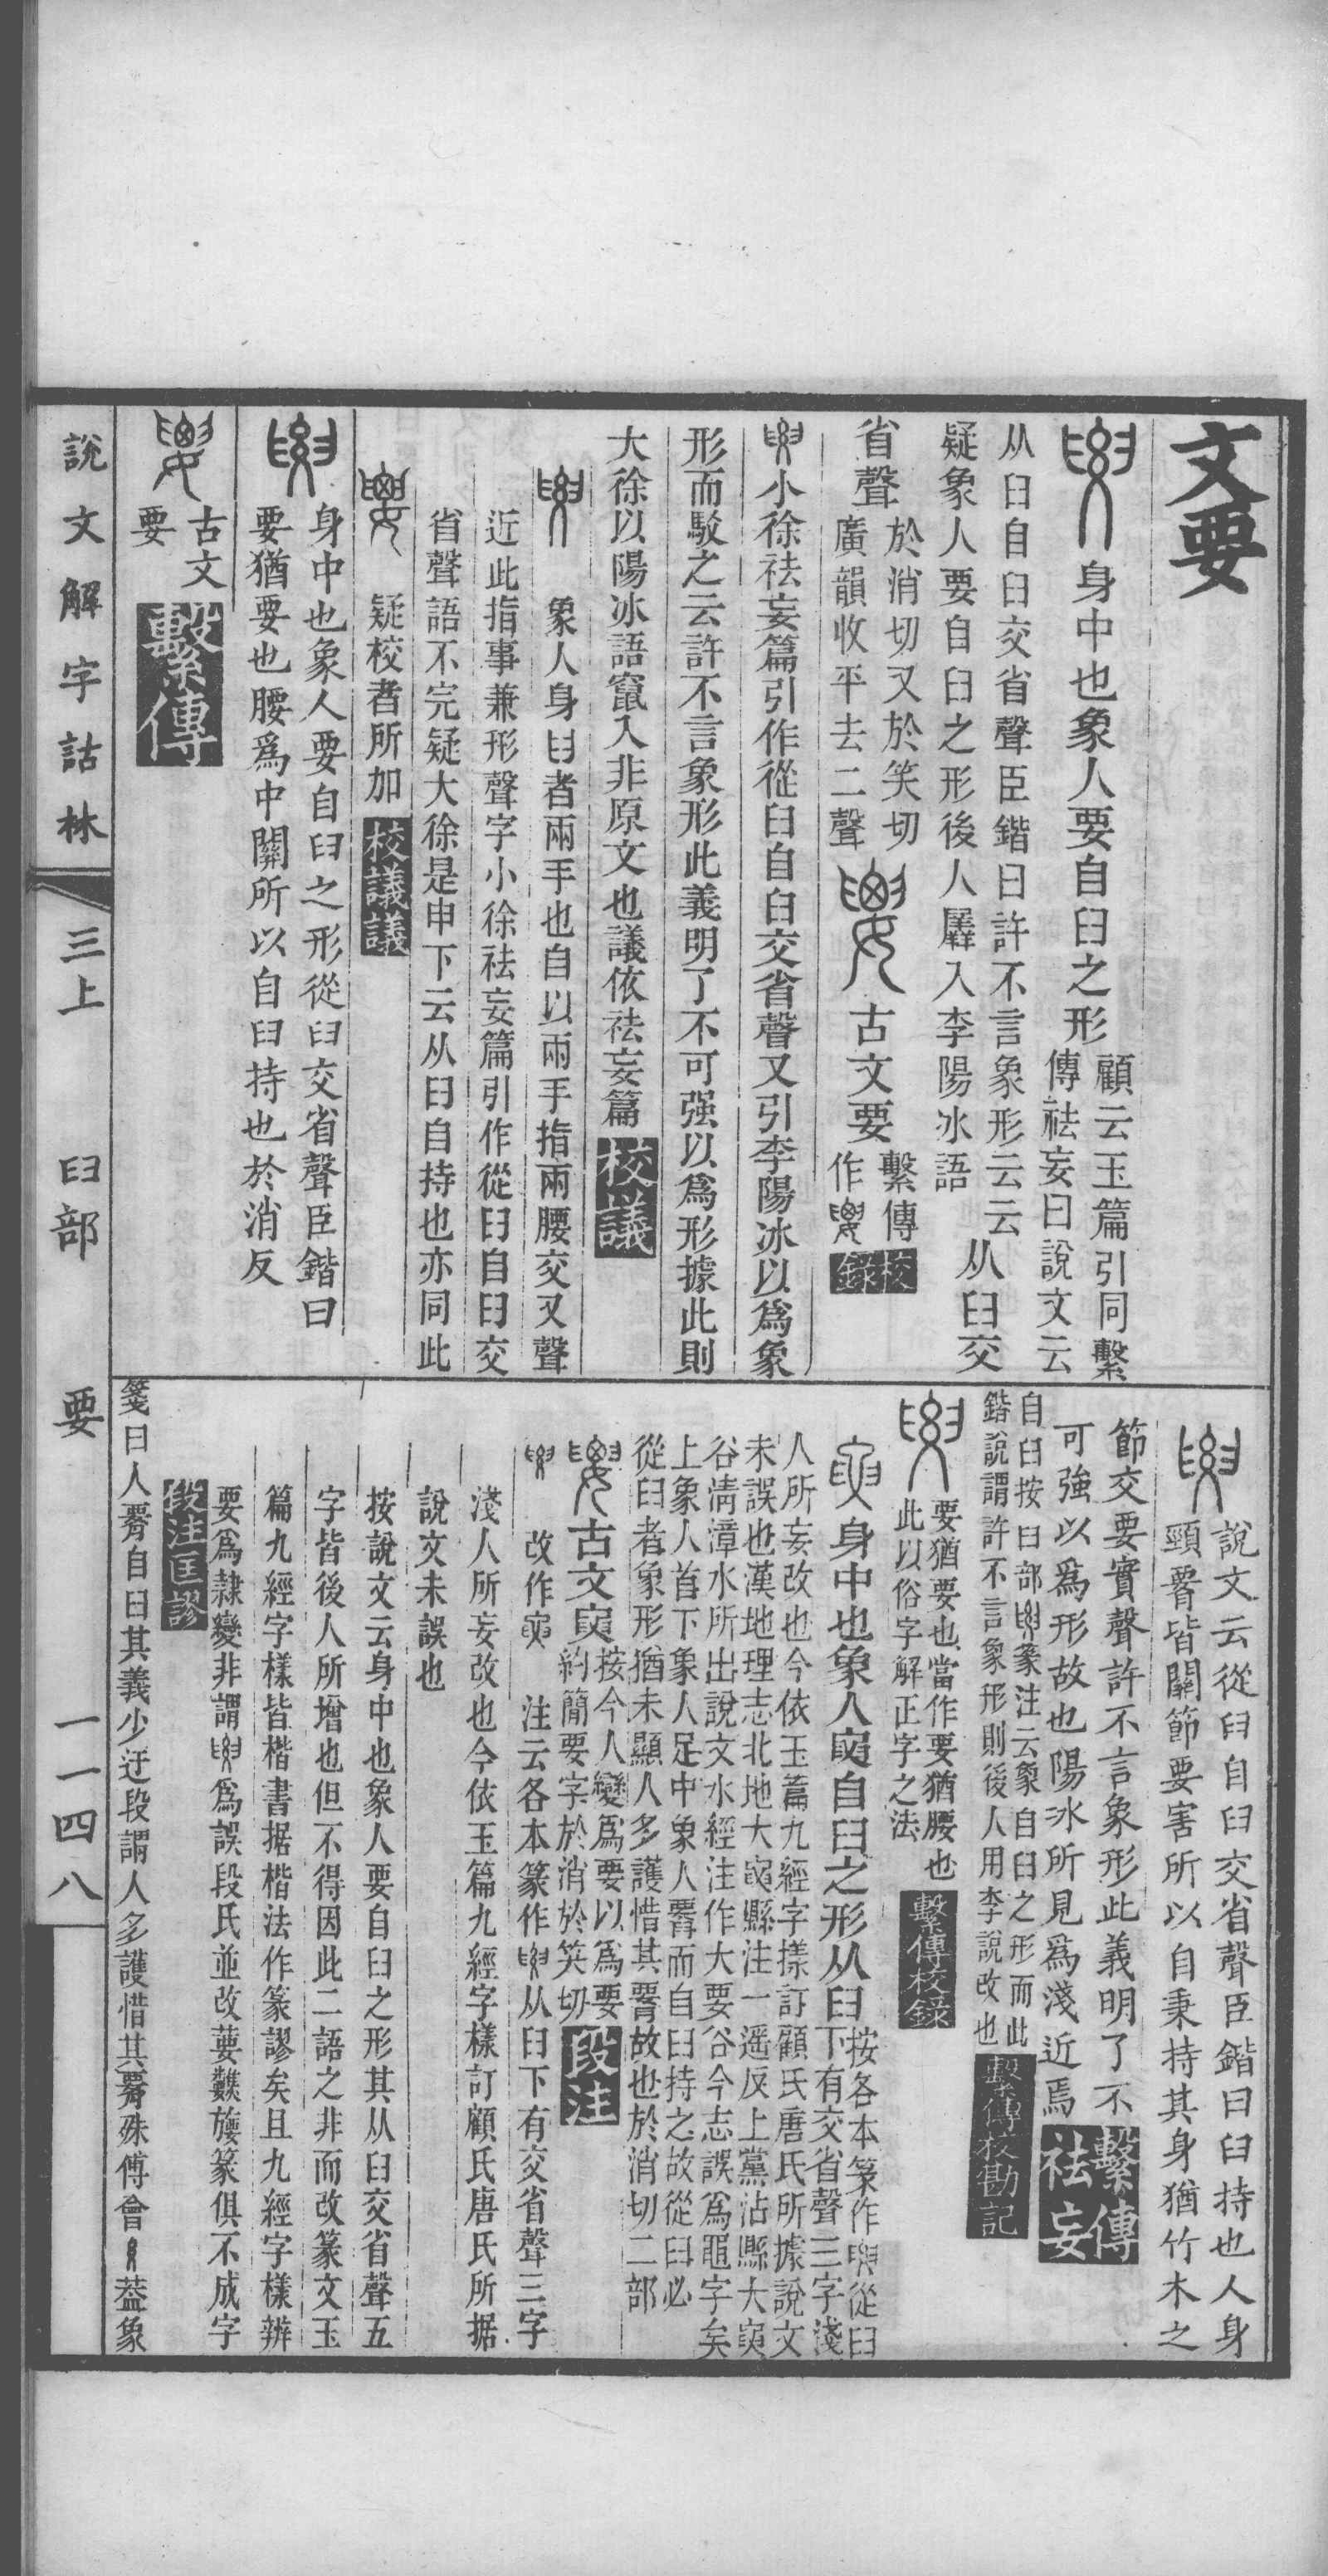 文要
身中也象人要自𦥑之形
顧云玉篇引同繫
傳祛妄曰說文云
从𦥑自𦥑交省聲臣鍇曰許不言象形云云
疑象人要自𦥑之形後人羼入李陽冰語
从𦥑交
省聲
於消切又於笑切
廣韻收平去二聲
古文要
繫傳
作
校
錄
小徐祛妄篇引作從𦥑自𦥑交省聲又引李陽冰以爲象
形而駁之云許不言象形此義明了不可强以爲形據此則
大徐以陽冰語竄入非原文也議依祛妄篇
校議
象人身𦥑者兩手也自以兩手指兩腰交又聲
近此指事兼形聲字小徐祛妄篇引作從𦥑自𦥑交
省聲語不完疑大徐是申下云从𦥑自持也亦同此
疑校者所加
校議議
身中也象人要自𦥑之形從𦥑交省聲臣鍇曰
要猶要也腰爲中關所以自𦥑持也於消反
古文
要
繫傳
說文云從𦥑自𦥑交省聲臣鍇曰𦥑持也人身
頸䙅皆關節要害所以自秉持其身猶竹木之
節交要實聲許不言象形此義明了不
可強以爲形故也陽冰所見爲淺近焉
繫傳
祛妄
自𦥑按𦥑部篆注云象自𦥑之形而此
鍇說謂許不言象形則後人用李說改也
繫傳校勘記
要猶要也當作要猶腰也
此以俗字解正字之法
繫傳校錄
身中也象人𡢗自𦥑之形从𦥑
按各本篆作從𦥑
下有交省聲三字淺
人所妄改也今依玉篇九經字㨾訂顧氏唐氏所據說文
未誤也漢地理志北地大𡢗縣注一遥反上黨沾縣大𡢗
谷清漳水所出說文水經注作大要谷今志誤爲黽字矣
上象人首下象人足中象人䙅而自𦥑持之故從𦥑必
從𦥑者象形猶未顯人多護惜其䙅故也於消切二部
古文𡢗
按今人變爲要以爲要
約簡要字於消於笑切
段注
改作𡢗　注云各本篆作从𦥑下有交省聲三字
淺人所妄改也今依玉篇九經字樣訂顧氏唐氏所据
說文未誤也
按說文云身中也象人要自𦥑之形其从𦥑交省聲五
字皆後人所增也但不得因此二語之非而改篆文玉
篇九經字樣皆楷書据楷法作篆謬矣且九經字樣辨
要爲隷變非謂爲誤段氏並改葽䙅篆俱不成字
段注匡謬
箋曰人䙅自𦥑其義少迂段謂人多護惜其䙅殊傅會葢象
說文解字詁林
三上
𦥑部
要
一一四八